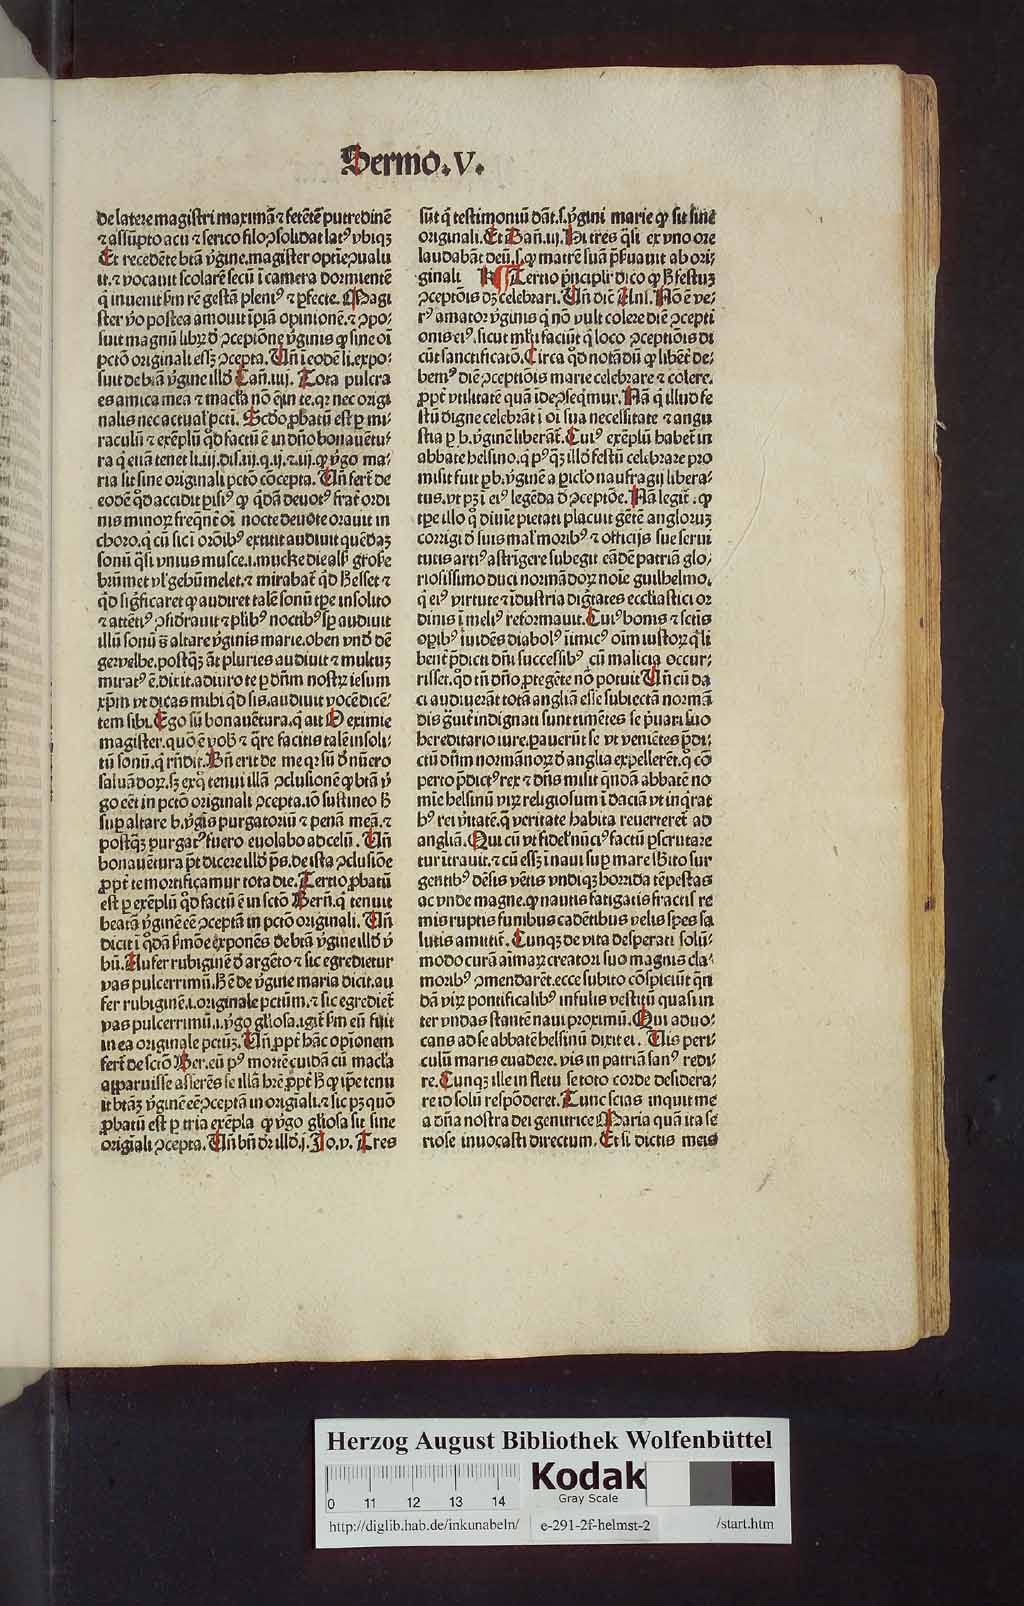 Sermo.V.
de latere magistri maximā ⁊ fetētē putredinē
⁊ assūpto acu ⁊ serico filo ꝯsolidat latꝰ vbiqꝫ
Et recedēte btā v̄gine.magister optīe ꝯualu
it.⁊ vocauit scolarē secū ī camera dormientē
q̄ inuenit s̄m rē gestā pleniꝰ ⁊ ꝑfecte. Magi
ster v̄o postea amouit īpiā opinionē.⁊ ꝯpo-
suit magnū libꝝ d̄ ꝯceptione v̄ginis ꝙ sine oī
pctō originali essꝫ ꝯcepta. Un̄ ī eodē li.expo-
suit de btā v̄gine illd̄ Can̄.iiij. Tota pulcra
es amica mea ⁊ macła nō ē in te.qꝛ nec origi
nalis nec actualꝭ pctī. Scd̄o ꝓbatū est ꝑ mi-
raculū ⁊ exēplū qd̄ factū ē in dn̄o bonauētu-
ra q̄ etiā tenet li.iij.dis.iij.q.ij.⁊.iij.ꝙ v̄go ma-
ria sit sine originali pctō cōcepta. Un̄ fert̄ de
eodē qd̄ accidit ꝑisiꝰ ꝙ q̄dā deuotꝰ frat̄ ordi
nis minoꝝ freq̄nt̄ oī nocte deuote orauit in
choro.q̄ cū sic ī orōibꝰ extitit audiuit quēdaꝫ
sonū q̄si vnius musce.i.mucke die alß große
brūmet vl̓ gebūmelet.⁊ mirabat̄ qd̄ h̄ esset ⁊
qd̄ sig̓ficaret ꝙ audiret talē sonū tꝑe insolito
⁊ attētiꝰ ꝯsidrauit ⁊ plibꝰ noctibꝰ sꝑ audiuit
illū sonū s̄ altare v̄ginis marie.oben vnd̄ dē
gewelbe.postqꝫ āt pluries audiuit ⁊ multuꝫ
miratꝰ ē.dixit.adiuro te ꝑ dn̄m nostꝝ iesum
xp̄m vt dicas mihi qd̄ sis.audiuit vocē dicē-
tem sibi. Ego sū bonauētura.q̄ ait O eximie
magister.quō ē vob̄ ⁊ q̄re facitis talē insoli-
tū sonū.q̄ rn̄dit. Bn̄ erit de me qꝛ sū d̄ nūero
saluādoꝝ.sꝫ exq̄ tenui illā ꝯclusionē ꝙ btā v̄
go eēt in pctō originali ꝯcepta.iō sustineo h̄
suꝑ altare b.v̄gīs purgatoriū ⁊ penā meā.⁊
postqꝫ purgatꝰ fuero euolabo ad celū. Un̄
bonauētura pt̄ dicere illd̄ ps̄.de ista ꝯclusiōe
ꝓpt̄ te mortificamur tota die. Tertio ꝓbatū
est ꝑ exēplū qd̄ factū ē in sctō Bern̄.q̄ tenuit
beatā v̄ginē eē ꝯceptā in pctō originali. Un̄
dicit ī q̄dā s̄mōe exponēs de btā v̄gine illd̄ v̄
bū. Aufer rubiginē d̄ argēto ⁊ sic egredietur
vas pulcerrimū. Bn̄ē de v̄gine maria dicit.au
fer rubiginē.i.originale pctūm.⁊ sic egrediet̄
vas pulcerrimū.i.v̄go głiosa.igit̄ s̄m eū fuit
in ea originale pctuꝫ. Un̄ ꝓpt̄ hāc opīonem
fert̄ de sctō Ber.eū pꝰ mortē cuidā cū macła
apparuisse asserēs se illā h̄re ꝓpt̄ h̄ ꝙ ip̄e tenu
it btāꝫ v̄ginē eē ꝯceptā in origīali.⁊ sic pꝫ quō
ꝓbatū est ꝑ tria exēpla ꝙ v̄go głiosa sit sine
origīali ꝯcepta. Un̄ bn̄ dꝛ illd̄.j. Jo.v. Tres
sūt q̄ testimoniū dāt.s.v̄gini marie ꝙ sit sine
originali. Et Dan̄.iij. Hi tres q̄si ex vno ore
laudabāt deū.s.ꝙ matrē suā p̄suauit ab ori-
ginali ¶ Tertio p̄ncipl̓r dico ꝙ h̄ festuꝫ
ꝯceptōis dꝫ celebrari. Un̄ diē Ans̄. Nō ē ve-
rꝰ amator v̄ginis q̄ nō vult colere diē ꝯcepti
onis eiꝰ.sicut ml̓ti faciūt q̄ loco ꝯceptiōis di
cūt sanctificatō. Circa qd̄ notādū ꝙ libēt̄ de-
bemꝰ diē ꝯceptiōis marie celebrare ⁊ colere.
ꝓpt̄ vtilitatē quā īde ꝯseq̄mur. Nā q̄ illud fe
stū digne celebrāt ī oī sua necessitate ⁊ angu
stia ꝑ b.v̄ginē liberāt̄. Cuiꝰ exēplū habet̄ in
abbate helsino.q̄ pꝰqꝫ illd̄ festū celebrare pro
misit fuit ꝑ b.v̄ginē a ꝑiclo naufragij libera-
tus.vt pꝫ ī eiꝰ legēda d̄ ꝯceptōe. Nā legit̄.ꝙ
tꝑe illo q̄ diuīe pietati placuit gētē angloruꝫ
corrigi d̄ suis mal̓ moribꝰ ⁊ officijs sue serui
tutis artiꝰ astrīgere subegit eādē patriā glo-
riosissimo duci normādoꝝ noīe guilhelmo.
q̄ eiꝰ virtute ⁊ īdustria dig̓tates eccl̓iastici or
dinis ī meliꝰ reformauit. Cuiꝰ bonis ⁊ sctīs
oꝑibꝰ īuidēs diabolꝰ īimicꝰ oīm iustoꝝ q̄ li
bent̄ p̄dicti dn̄i successibꝰ cū malicia occur-
risset.qd̄ tn̄ dn̄o ꝓtegēte nō potuit Un̄ cū da
ci audiuerāt totā angliā esse subiectā normā
dis g̓uit̄ indignati sunt timētes se p̄uari suo
hereditario iure.ꝑauerūt se vt veniētes p̄di-
ctū dn̄m normānoꝝ d̄ anglia expellerēt.q̄ cō
perto p̄dictꝰ rex ⁊ dn̄s misit q̄ndā abbatē no
mīe helsinū viꝝ religiosum ī daciā vt inq̄rat
hꝰ rei v̓itatē.q̄ veritate habita reuerteret̄ ad
angliā. Qui cū vt fidel̓ nūciꝰ factū ꝑscrutare
tur ītrauit.⁊ cū essꝫ ī naui suꝑ mare s̄bito sur
gentibꝰ dēsis vētis vndiqꝫ horrida tēpestas
ac vnde magne.ꝙ nautis fatigatis fractis re
mis ruptis funibus cadētibus velis spes sa
lutis amittit̄. Cunqꝫ de vita desperati solū-
modo curā aīmaꝝ creatori suo magnis cla-
moribꝰ ꝯmendarēt.ecce subito cōspiciūt q̄n
dā viꝝ pontificalibꝰ infulis vestitū quasi in
ter vndas stantē naui proximū. Qui aduo-
cans ad se abbatē helsinū dixit ei. Uis peri-
culū maris euadere.vis in patriā sanꝰ redi-
re. Cunqꝫ ille in fletu se toto corde desidera-
re id solū respōderet. Tunc scias inquit me
a dn̄a nostra dei genitrice Maria quā ita se
riose inuocasti directum. Et si dictis meis
Herzog August Bibliothek Wolfenbüttel
0 11 12 13 14
Kodak
Gray Scale
http://diglib.hab.de/inkunabeln/ e-291-2f-helmst-2 /start.htm